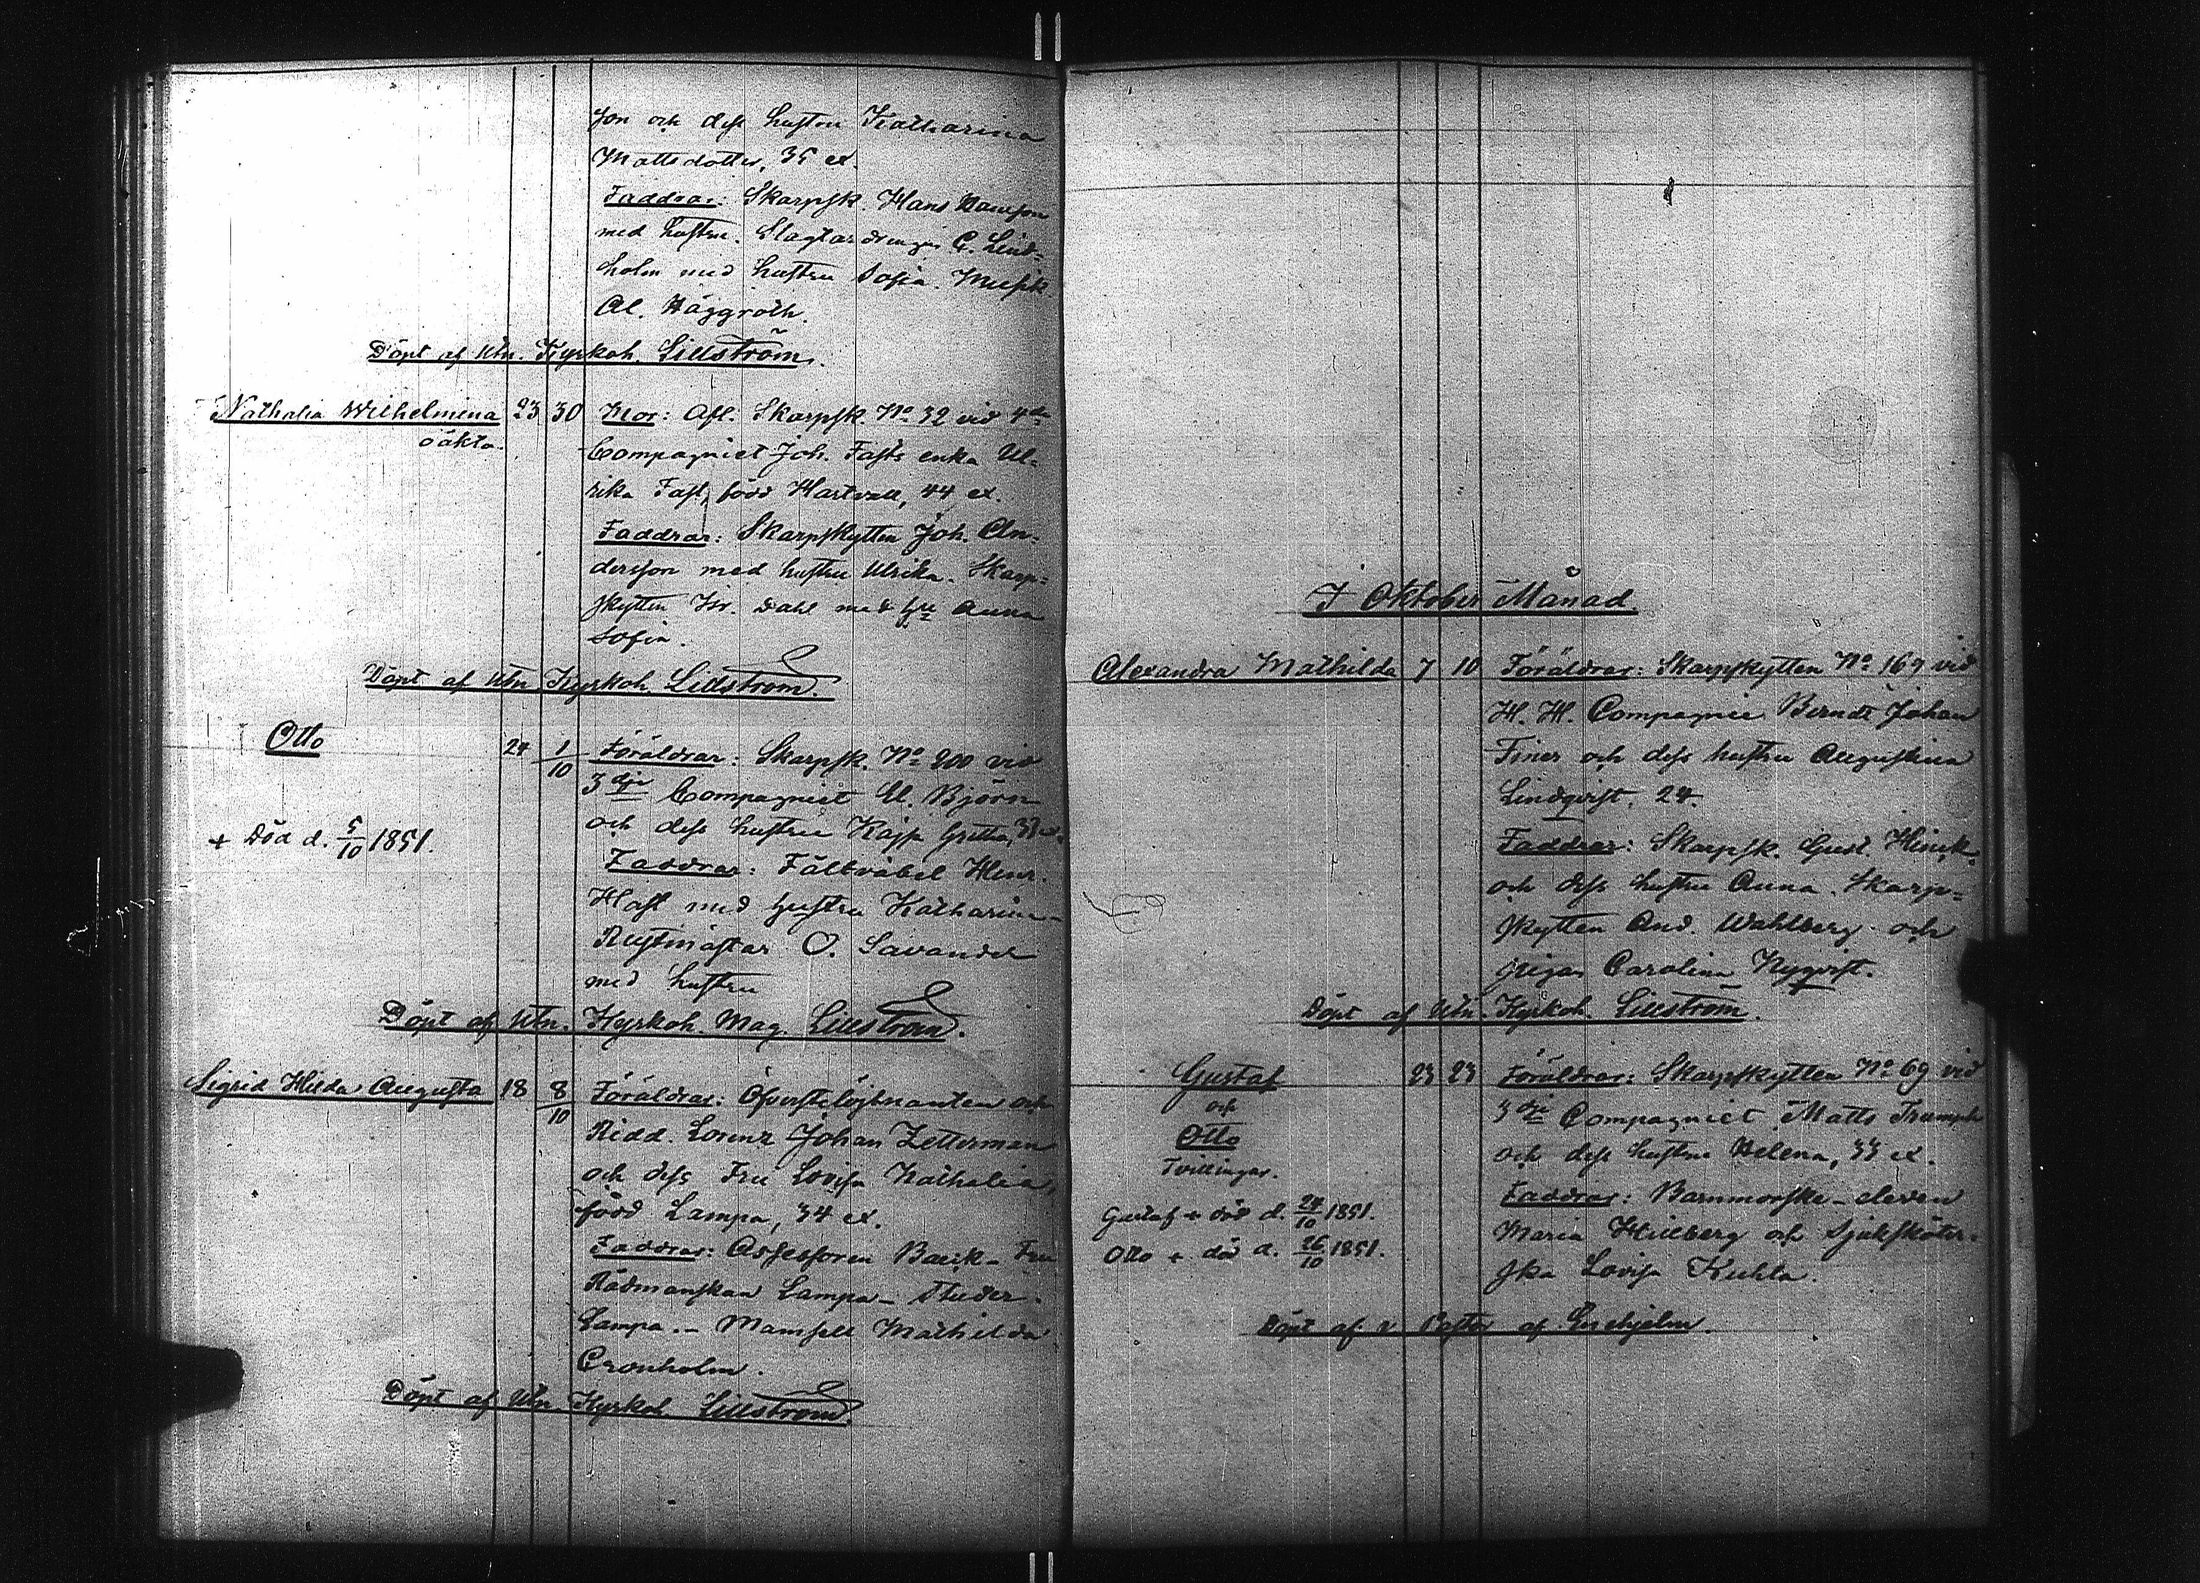 son och dess hustru Katharina
Mattsdotter, 35 år.
Faddrar: Skarpsk. Hans
med hustru. Slagtardrengen C. Lind-
holm med hustru Sofia. Musik
Al. Häggroth.
Döpt af Utn. Kyrkoh. Lillström.
Nathalia Wilhelmina 23 30 Mor: Afl. Skarpsk. No 32 vid 4de
oäkta. Compagniet Joh. Fasts enka Ul-
rika Fast, född Hartvall, 44 år.
Faddrar: Skarpskytten Joh. An-
dersson med hustru Ulrika. Skarp-
skytten Dahl med hu Anna
Sofia.
Döpt af Utn Kyrkoh. Lillström.
Otto 24 1/10 Föräldrar: Skarpsk. No 200 vid
3dje Compagniet U. Björn
+ Död d. 5/10 1851. och dess hustru Kajsa Gretta,
Faddrar: Fältväbel Henr.
Hast med hustru Katharina-
Rustmästar O. Savander
med hustru
Döpt af Utn. Kyrkoh. Mag. Lillström.
Sigrid Hilda Augusta 18 8/10 Föräldrar: Öfverstelöjtnanten och
Ridd. Lorenz Johan Zetterman
och dess Fru Lovisa Nathalia,
född Lampa, 34 år.
Faddrar: Assessoren - Fru
Rådmanskan Lampa - Studer.
Lampa. - Mamsell Mathilda
Cronholm.
Döpt af Utn Kyrkoh. Lillström.
I Oktober Månad.
Alexandra Mathilda 7 10 Föräldrar: Skarpskytten No 167 vid
H. H. Compagnie Berndt Johan
Finer och dess hustru Augustina
Lindqvist. 24.
Faddrar: Skarpsk. Gust.
och dess hustru Anna. Skarp-
skytten And. Wahlberg och
pigan Carolina Nyqvist.
Döpt af Utn. Kyrkoh. Lillström.
Gustaf 23 23 Föräldrar: Skarpskytten No 69 vid
och 3dje Compagniet Matts Trumph
Otto och dess hustru Helena, 33 år.
Tvillingar. Faddrar: Barnmorske-eleven
Gustaf + död d. 24/10 1851. Maria Hillberg och Sjuksköter-
Otto + död d. 26/10 1851. ska Lovisa Kuhla.
Döpt af v Pastor af Enehjelm.